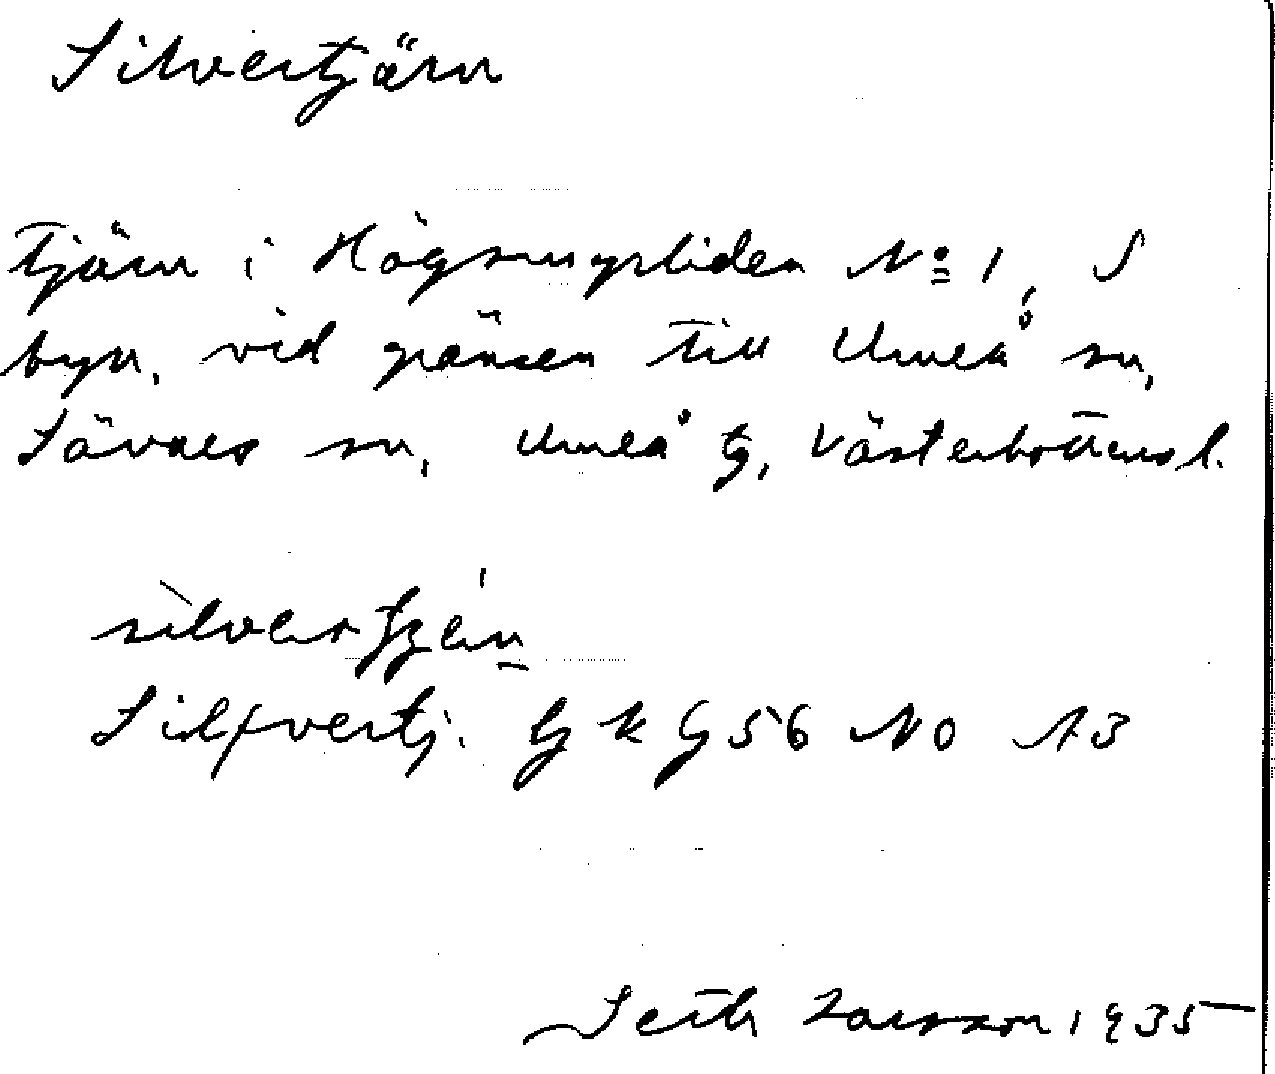 Silvertjärn
Tjärn i Högsmyrliden No 1, S
byn, vid gränsen till Umeå sn,
Sävars sn, Umeå tg, Västerbottens l.
silfvertj. gk G56 No 13
Seth Larsson 1935